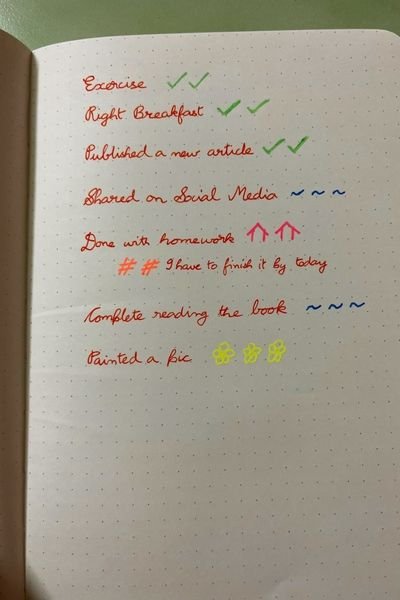 Exercise ✓✓
Right Breakfast ✓✓
Published a new article ✓✓
Shared on Social Media ~ ~ ~
Done with homework ⇑ ⇑
# # I have to finish it by today
Complete reading the book ~ ~ ~
Painted a pic